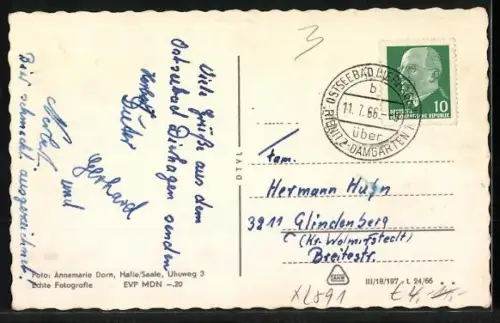 Viele Grüße aus dem
Ostseebad Dierhagen senden
Herbert
Dieter
Gerhard
und
Norbert
Bier schmeckt ausgezeichnet.
Foto: Annemarie Dorn, Halle/Saale, Uhuweg 3
Echte Fotografie EVP MDN -.20
3
OSTSEEBAD
b
11.7.66.
über
RIBNITZ-DAMGARTEN
10
DEUTSCHE
DEMOKRATISCHE REPUBLIK
Fam.
Hermann Huhn
3211 Glindenberg
(Kr. Wolmirstedt)
Breitestr.
III/18/197 L 24/66
XL591